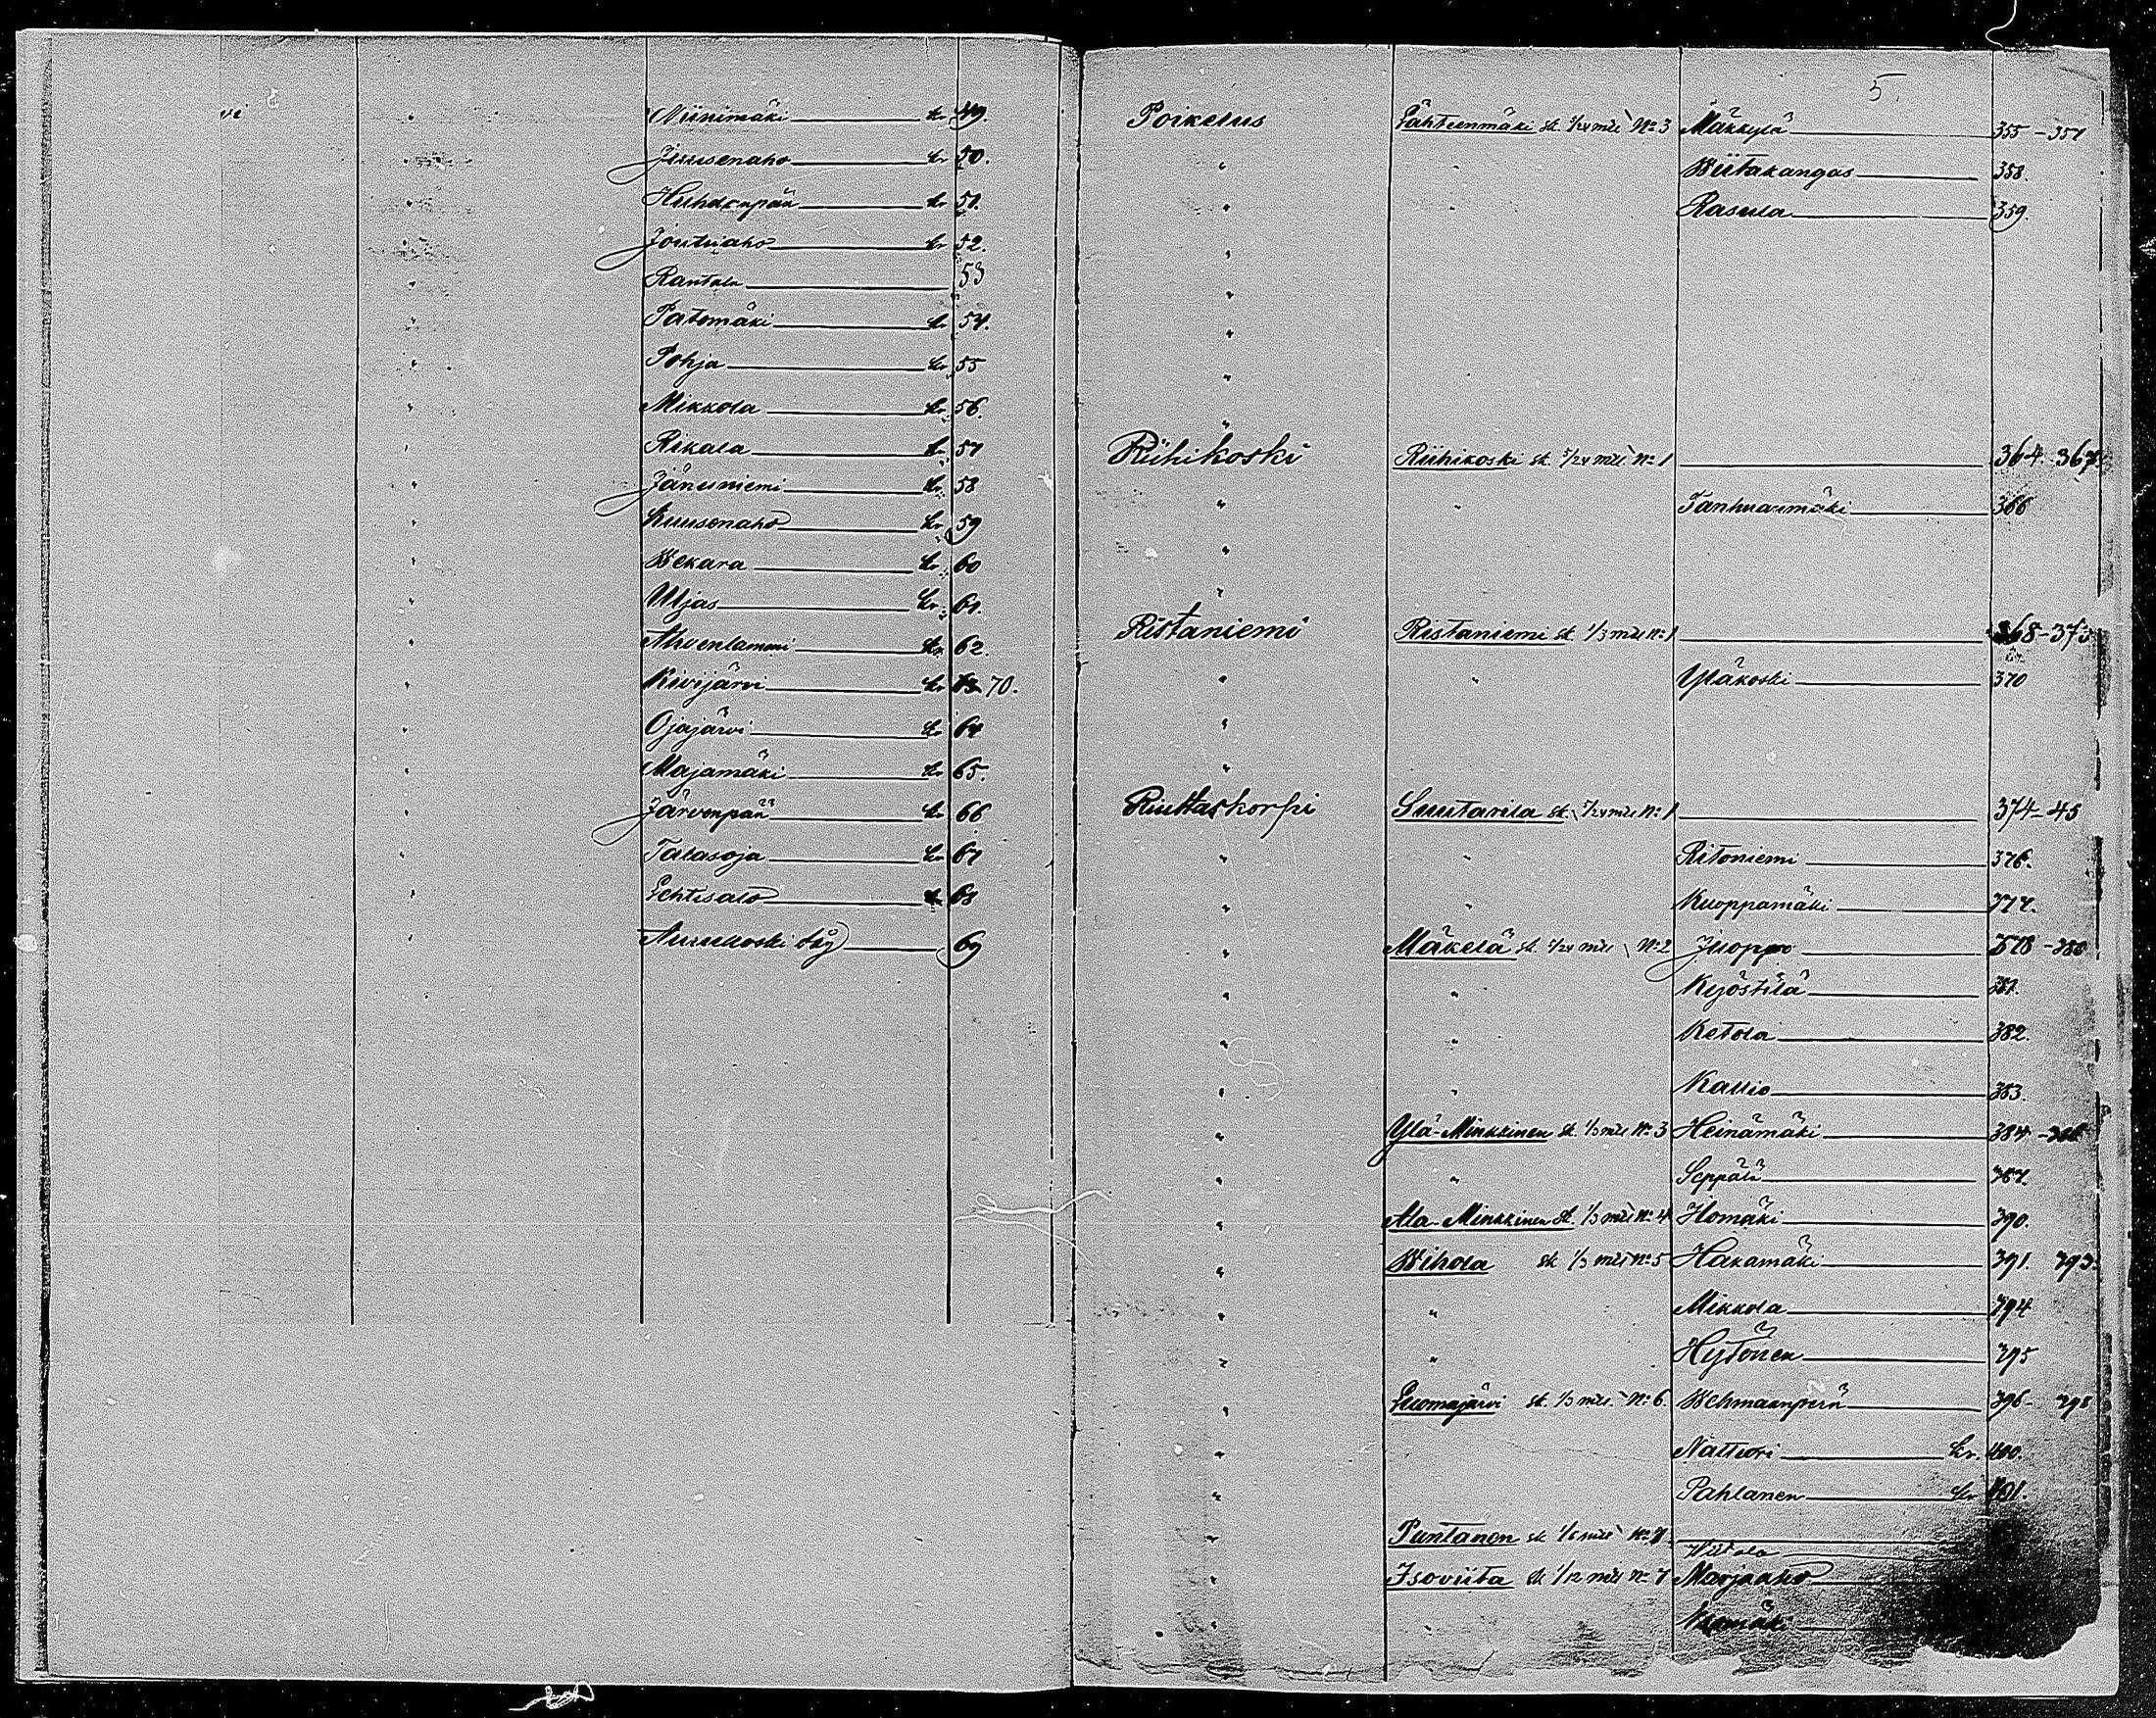 vi " Niinimäki kr 49.
" Jiiusenaho kr 50.
" Huhdanpää kr 51.
" Joutsiaho kr 52.
" Rantala 53
" Patomäki kr 54.
" Pohja kr 55
" Mikkola kr 56.
" Rikala kr 57
" Jäneniemi kr 58
" Kuusenaho kr 59
" Wekara kr 60
" Uljas kr 61.
" Ahvenlammi kr 62.
" Kivijärvi kr 70.
" Ojajärvi kr 64
" Majamäki kr 65.
" Järvenpää kr 66
" Talasoja kr 67
" Lehtisalo 68
" Såg 69
5.
Poikelus Lähteenmäki sk. 1/24 mtl No 3 Mäkkylä 355 - 357
" " Wiitakangas 358.
" " Rasula 359.
"
"
"
"
"
Riihikoski Riihikoski sk. 5/24 mtl No 1 364 - 367
" " Tanhuanmäki 366
"
"
Ristaniemi Ristaniemi sk. 1/3 mtl No 1 368 - 373
" " Yläkoski 370
"
"
Riuttaskorpi Suutarila sk. 5/24 mtl No 1 374 - 45
" " Ritoniemi 376.
" " Kuoppamäki 377.
" Mäkelä sk. 5/24 mtl No 2 Juoppo 378 - 380
" " Kyöstilä 381.
" " Ketola 382.
" " Kallio 383.
" Ylä-Minkkinen sk. 1/3 mtl No 3 Heinämäki 384 -
" " Seppälä 387.
" Ala-Minkkinen sk. 1/3 mtl No 4 Homäki 390.
" Wihola sk 1/3 mtl No 5 Hakamäki 391. 393.
" " Mikkola 394
" " Hytönen 395
" Luomajärvi sk. 1/3 mtl. No 6. Wehmaanperä 396 - 398
" Nattiori kr. 400.
" Pahlanen kr 401.
" Puntanen sk 1/6 mtl No 7
Wiitala
" Isoviita sk 1/12 mtl No 7 Marjaaho
"